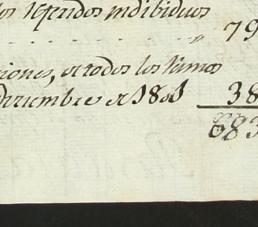 los referidos indibiduos
79
ciones, de todos los ramos
Diziembre de 1801 38
683